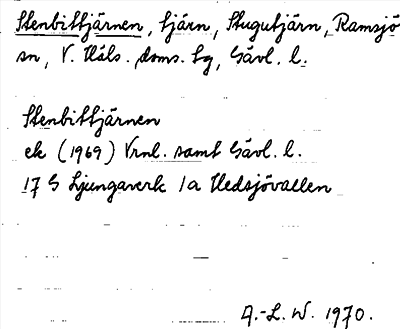 Stenbittjärnen, tjärn, Stugutjärn, Ramsjö
sn, V. Häls. doms. lg, Gävl. l.
Stenbittjärnen
ek (1969) Vrnl. samt Gävl. l.
17 G Ljungaverk 1a Hedsjövallen
A.-L. W. 1970.